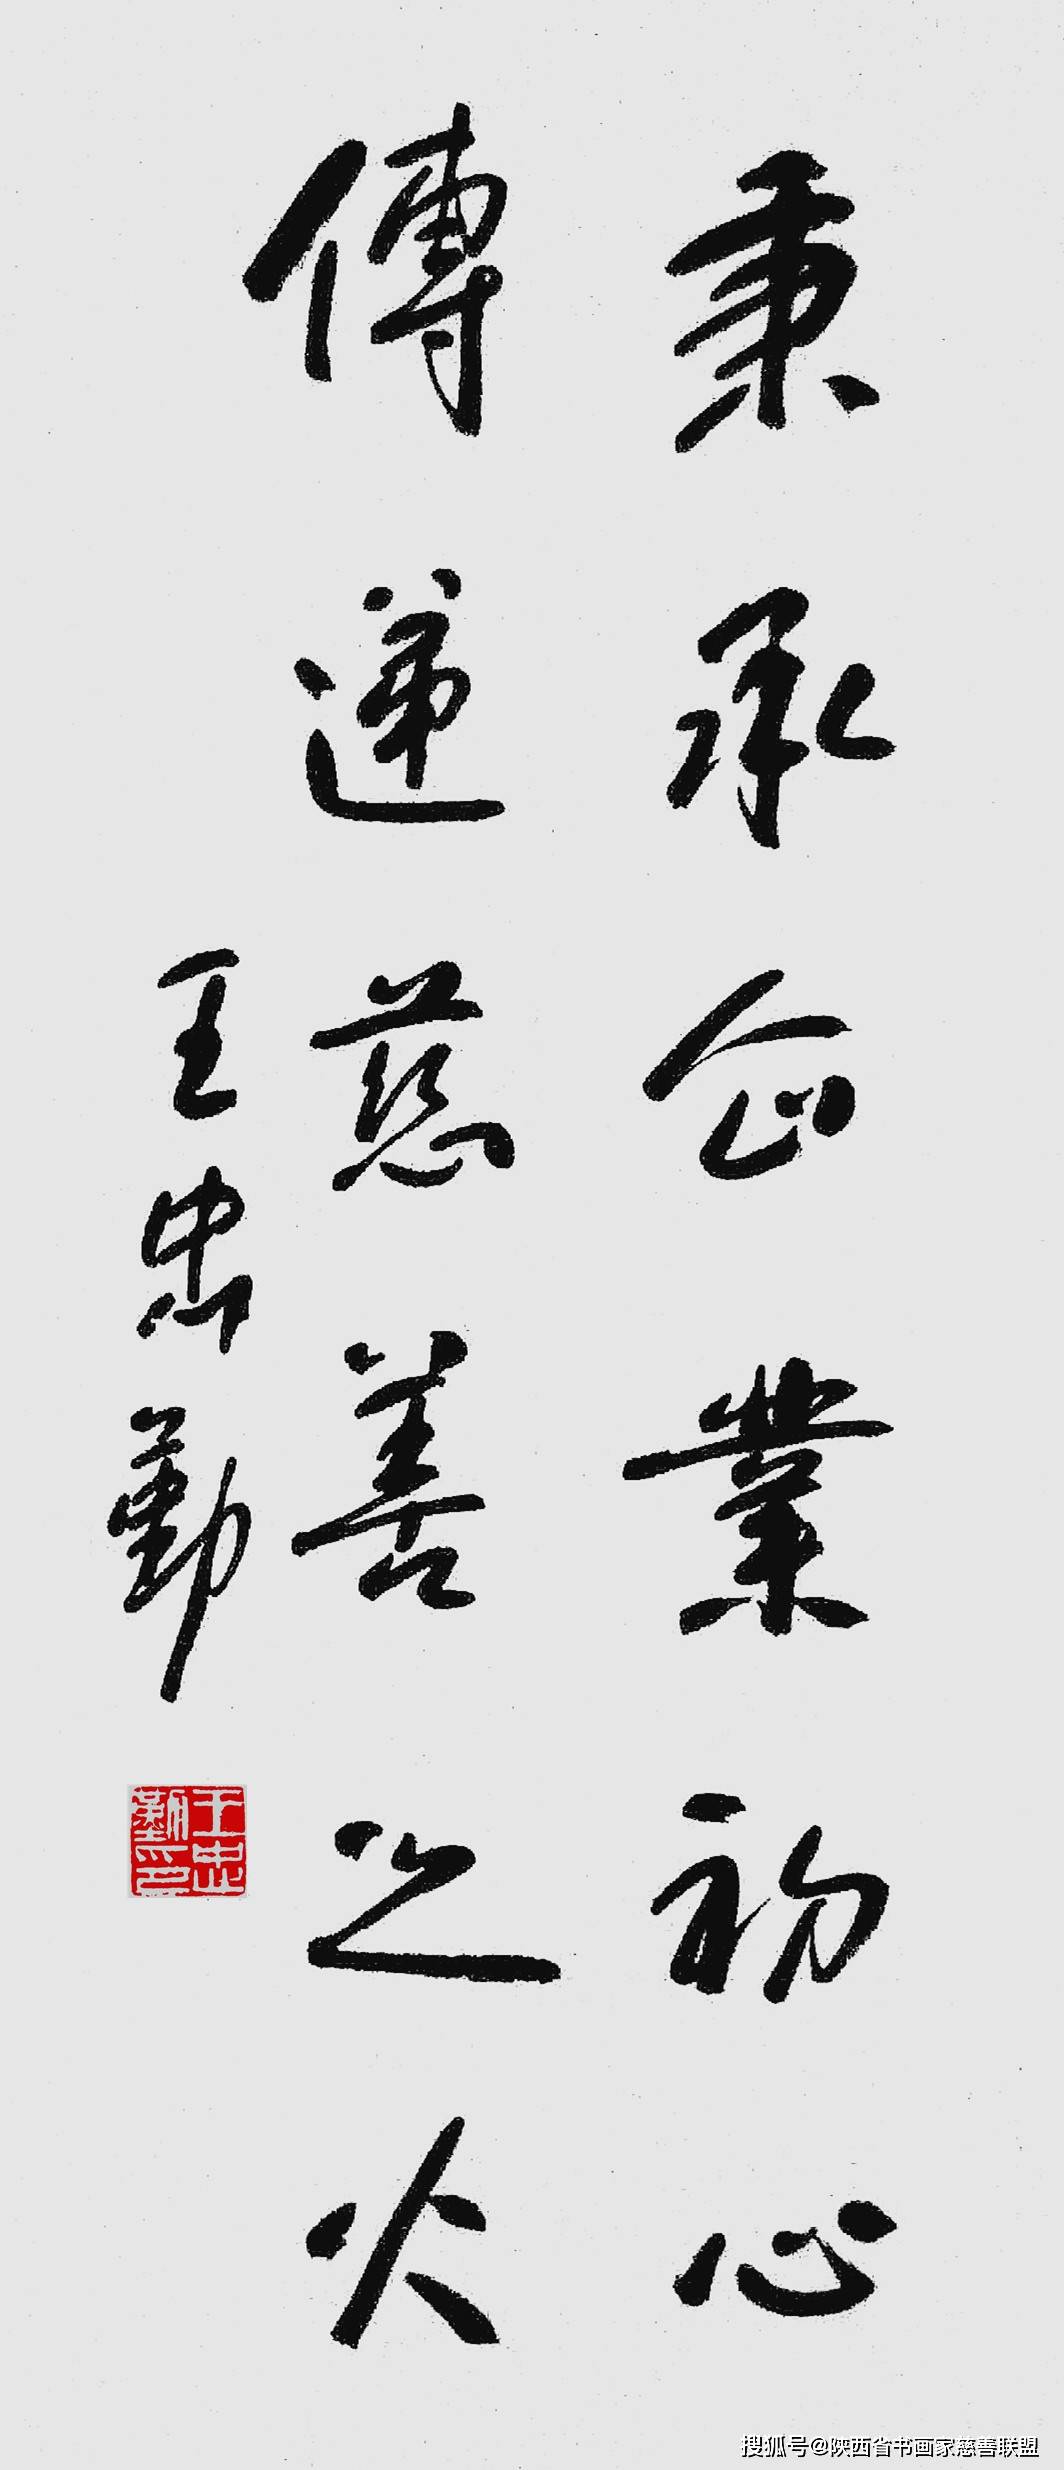 秉承企業初心
傳遞慈善之火
王忠勤
王忠勤印
搜狐号@陕西省书画家慈善联盟